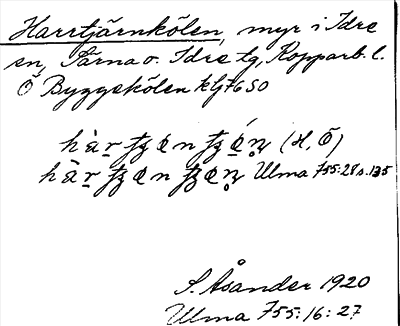 Harrtjärnkölen, myr i Idre
sn, Särna o. Idre tg, Kopparb. l.
Ö Byggekölen klj + 650
(H, Ö)
Ulma 755:28 s. 135
S. Åsander 1920
Ulma 755:16:27